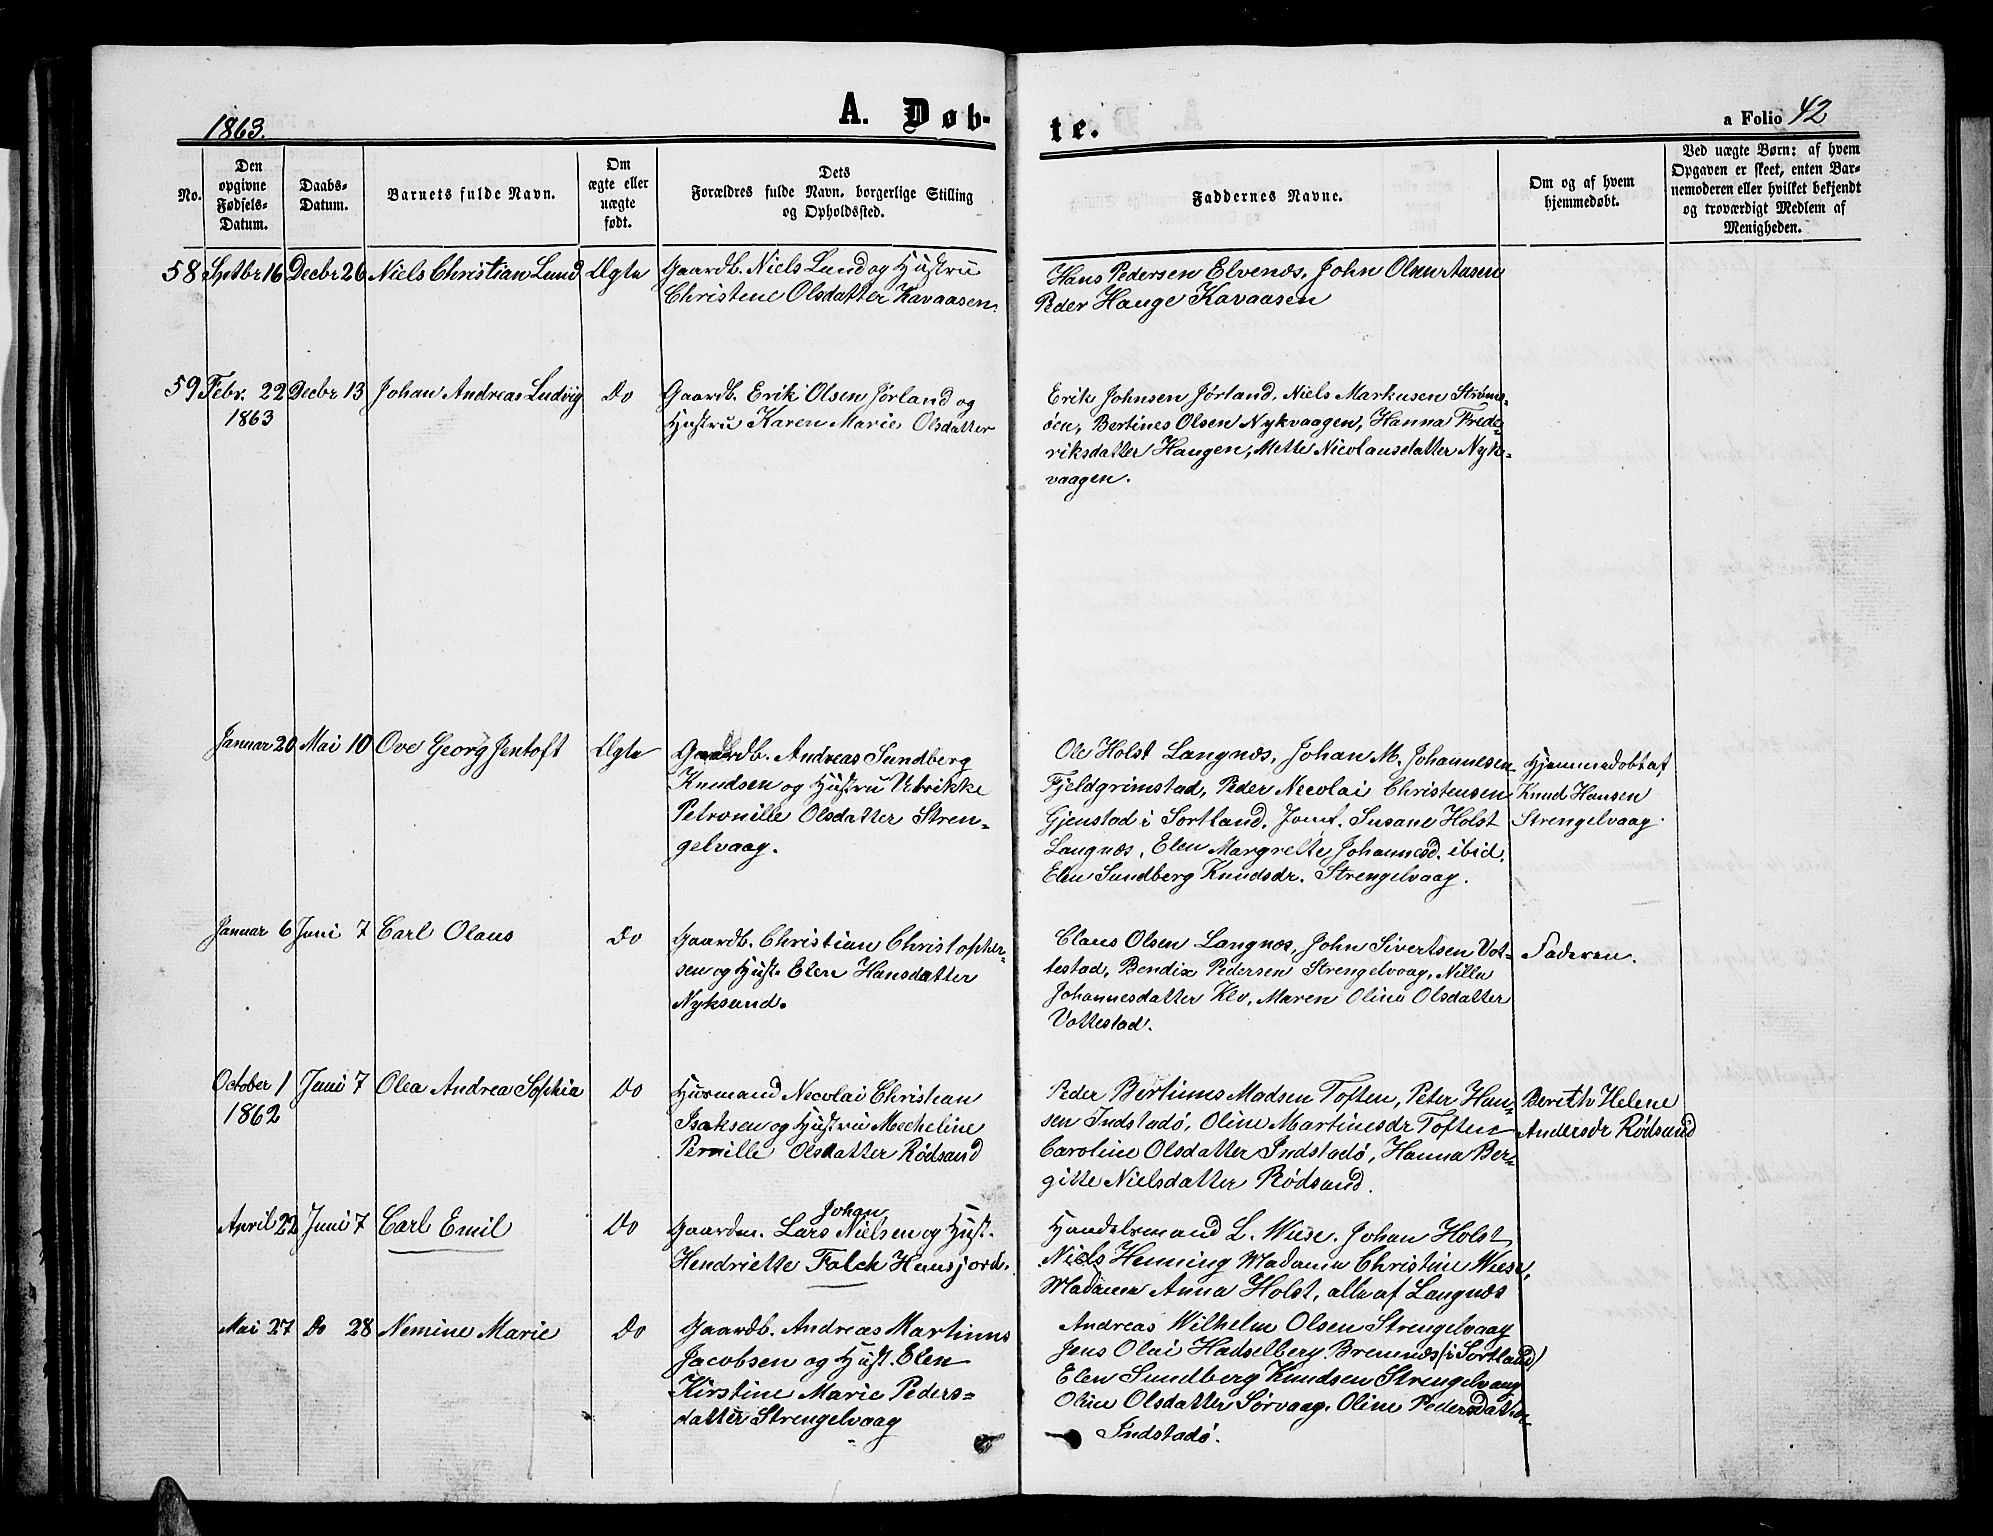 1863.
A. Døb-
te.
a Folio 42
No.
Den
opgivne
Fødsels-
Datum.
Daabs-
Datum.
Barnets fulde Navn.
Om
ægte eller
uægte
født.
Dets
Forældres fulde Navn, borgerlige Stilling
og Opholdssted.
Faddernes Navne.
Om og af hvem
hjemmedøbt.
Ved uægte Børn: af hvem
Opgaven er skeet, enten Bar-
nemoderen eller hvilket bekjendt
og troværdigt Medlem af
Menigheden.
58 Septbr 16 Decbr 26 Niels Christian Lund Ægte
Gaardb. Niels Lund og Hustru
Christene Olsdatter Kavaasen.
Hans Pedersen Elvenæs, John Olsen Aasen
Peder Hauge Kavaasen
59 Febr. 22
1863
Decbr 13 Johan Andreas Ludvig Do
Gaardb. Erik Olsen Jørland og
Hustru Karen Marie Olsdatter
Erik Johnsen Jørland, Niels Markusen Strøms-
øen, Bertines Olsen Nykvaagen, Hanna Frede-
riksdatter Haugen, Mette Nicolausdatter Nyk-
vaagen.
Januar 20 Mai 10 Ove Georg Jentoft Ægte
Gaardb. Andreas Sundberg
Knudsen og Hustru Ulrikke
Petronille Olsdatter Stren-
gelvaag.
Ole Holst Langnæs, Johan M. Johannesen
Fjeldgrimstad, Peder Necolai Christensen
Gjenstad i Sortland. Jomf. Susane Holst
Langnæs, Elen Margrette Johannesd. ibid.
Elen Sundberg Knudsdr. Strengelvaag.
Hjemmedøbt af
Knud Hansen
Strengelvaag.
Januar 6 Juni 7 Carl Olaus Do
Gaardb. Christian Christopher-
sen og Hust. Elen Hansdatter
Nyksund.
Claus Olsen Langnæs, John Sivertsen Vot-
testad, Bendix Pedersen Strengelvaag, Nilla
Johannesdatter Klo, Maren Oline Olsdatter
Vottestad.
Faderen.
October 1
1862
Juni 7 Olea Andrea Sophia Do
Husmand Necolai Christian
Isaksen og Hustru Mecheline
Pernille Olsdatter Rødsand
Peder Bertinus Madsen Toften, Peter Han-
sen Indstadø, Oline Martinesdr Toften
Caroline Olsdatter Indstadø, Hanna Ber-
gitte Nielsdatter Rødsand.
Bereth Helene
Andersdr Rødsand
April 22 Juni 7 Carl Emil Do
Johan
Gaardm. Lars Nielsen og Hust.
Hendriette Falch Hausjord.
Handelsmand L. Wiese. Johan Holst
Niels Henning Madame Christine Wiese,
Madame Anna Holst, alle af Langnæs
Mai 27 Do 28 Nemine Marie Do
Gaardb. Andreas Martinus
Jacobsen og Hust. Elen
Kirstine Marie Peders-
datter Strengelvaag
Andreas Wilhelm Olsen Strengelvaag
Jens Olai Hadselberg Bremnæs (i Sortland)
Elen Sundberg Knudsen Strengelvaag
Oline Olsdatter Sørvaag. Oline Pedersdatter
Indstadø.